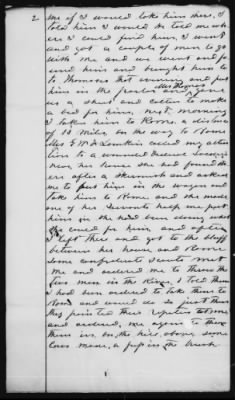 2 me if I would take him there, I
told him I would. He told me wh
ere I could find him, I went
and got a couple of men to go
with me and we went and fo
und him and brought him to
to Thomases that evening and put
him in the parlor and Mrs Thomas gave
us a sheet and cotton to make
a bed for him, next morning
I taken him to Rome, a distance
of 10 miles, on the way to Rome
Mrs G W Lumkin called my atten
tion to a wounded Federal Soldier
near her house she had found th
ere after a skirmish and asked
me to put him in the wagon and
take him to Rome and she made
one of her servants help me put
him in she had been doing what
she could for him, and after
I left there and got to the bluff
between her house and Rome
some confederate scouts met
me and ordered me to throw the
two men in the River, I told them
I had been ordered to take them to
Rome and would do so just then
they pointed their rifles at me
and ordered me again to throw
them in, on the hill above some
more, a puff in the brush